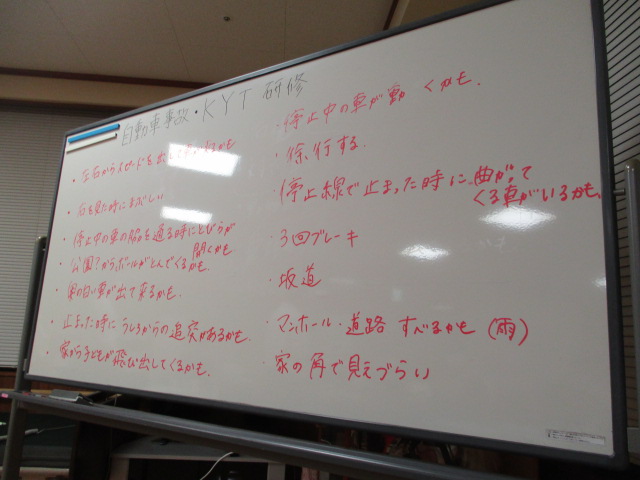 自動車事故・KYT 研修
・左右からスピードを出して
・右を見た時にまぶしい
・停止中の車の脇を通る時にとびらが
開くかも
・公園?からボールがとんでくるかも.
の白い車が出て来るかも.
・止まった時にうしろからの追突があるかも.
・家から子どもが飛び出してくるかも.
・停止中の車が動くかも.
・徐行する.
・停止線で止まった時に、曲がって
くる車がいるかも.
・3回ブレーキ
・坂道
・マンホール・道路 すべるかも (雨)
・家の角で見えづらい